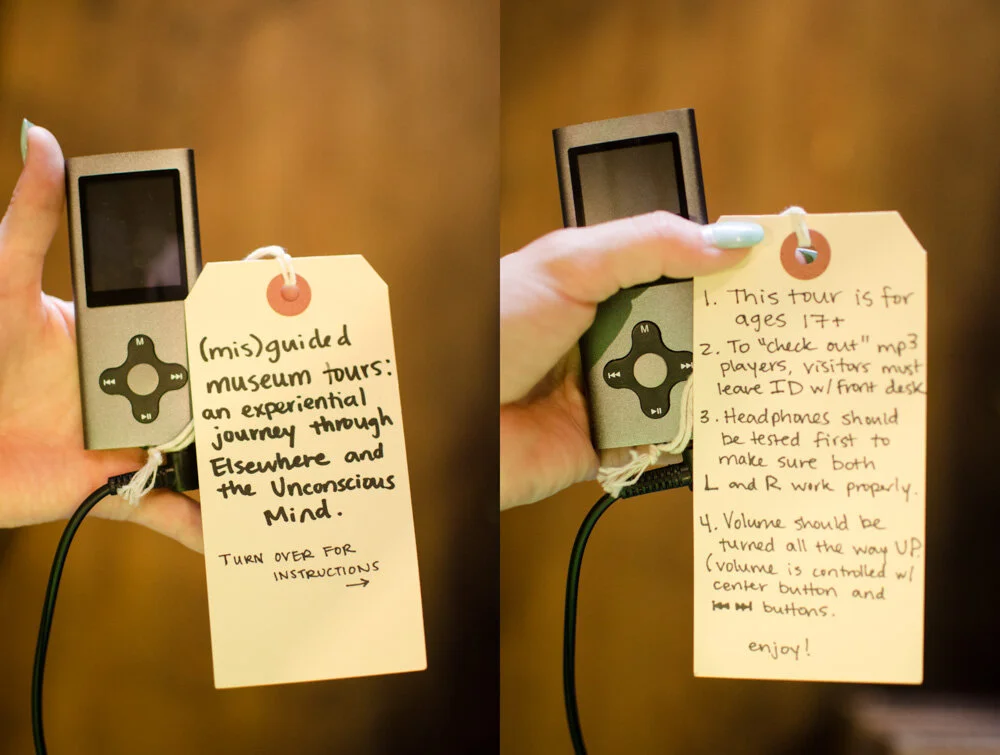 M
(mis)guided
museum tours:
an experiential
journey through
Elsewhere and
the Unconscious
Mind.
TURN OVER FOR
INSTRUCTIONS
→
M
1. This tour is for
ages 17+
2. To "check out" mp3
players, visitors must
leave ID w/front desk
3. Headphones should
be tested first to
make sure both
L and R work properly.
4. Volume should be
turned all the way UP.
(volume is controlled w/
center button and
⏮ ⏭ buttons.
enjoy!